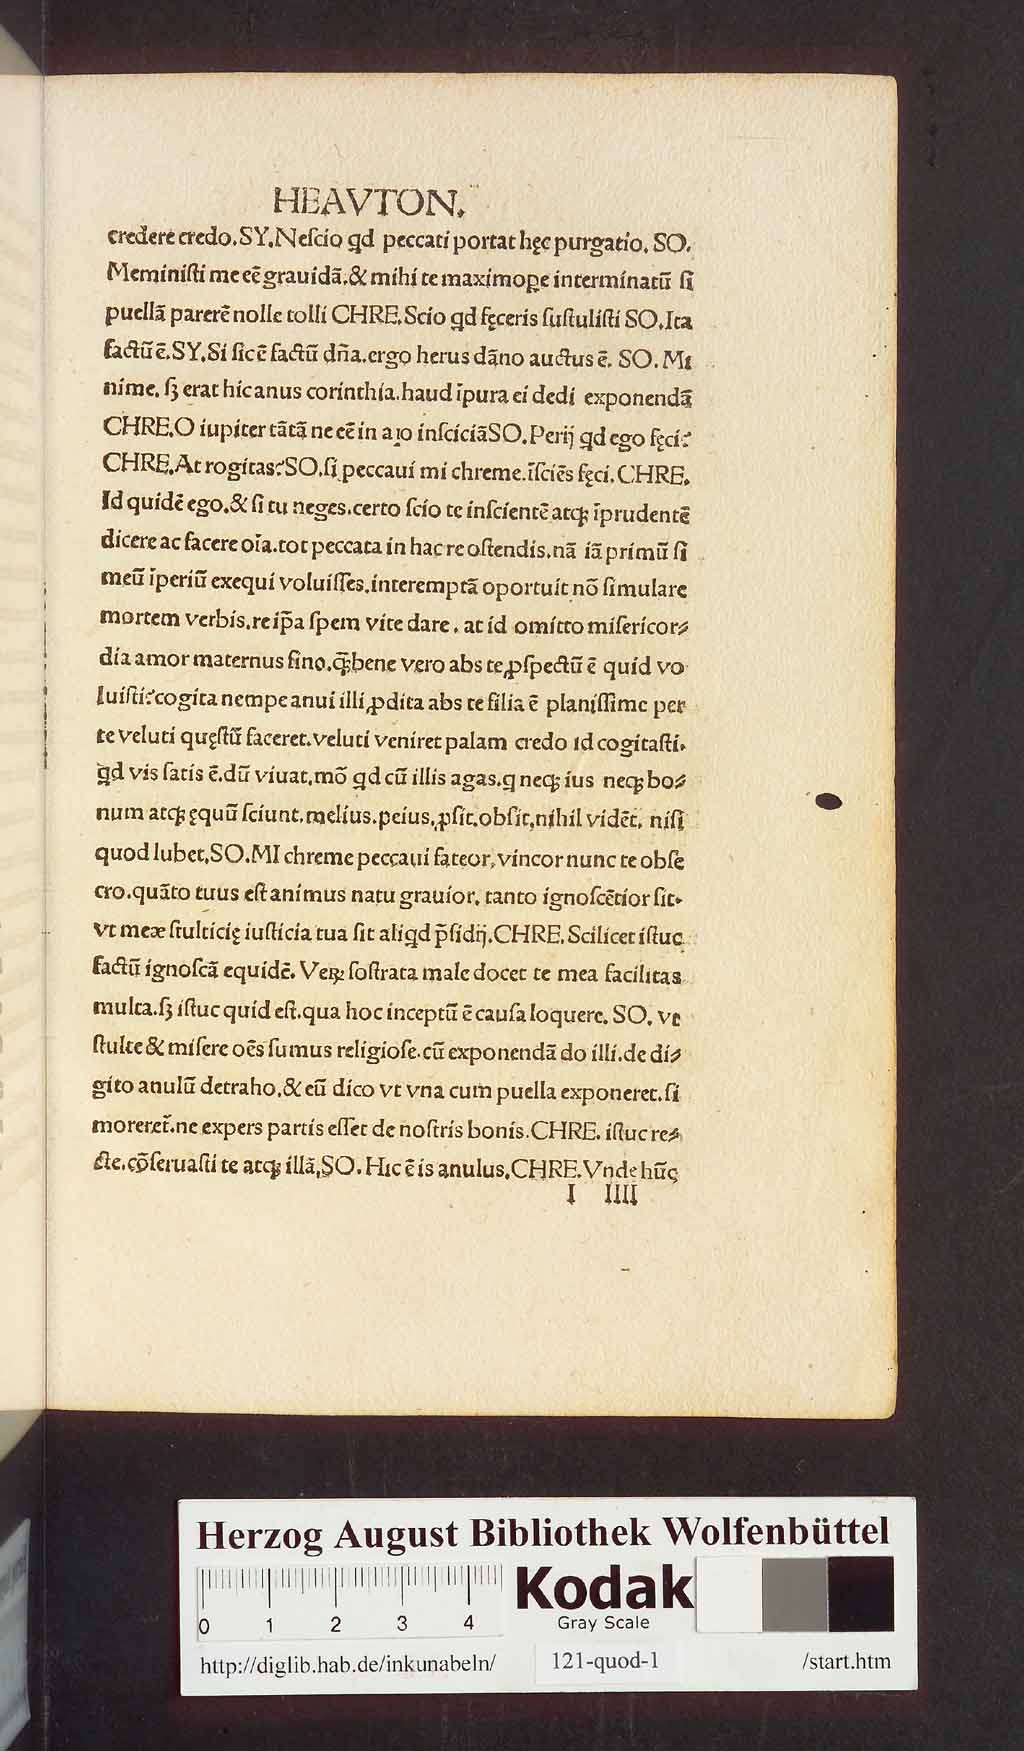 HEAVTON.
credere credo.SY.Neſcio qd peccati portat hęc purgatio. SO.
Meminiſti me eē grauidā.& mihi te maximoꝑe interminatū ſi
puellā parerē nolle tolli CHRE.Scio qd fęceris ſuſtuliſti SO.Ita
factū ē.SY.Si ſic ē factū dn̄a.ergo herus dāno auctus ē. SO. Mi
nime. ſꝫ erat hic anus corinthia.haud īpura ei dedi exponendā
CHRE.O iupiter tātā ne eē in aīo inſciciā SO.Perij qd ego fęci?
CHRE.At rogitas?SO.ſi peccaui mi chreme.īſciēs fęci. CHRE.
Id quidē ego.& ſi tu neges.certo ſcio te inſcientē atqꝫ īprudentē
dicere ac facere oīa.tot peccata in hac re oſtendis.nā iā primū ſi
meū īperiū exequi voluiſſes.interemptā oportuit nō ſimulare
mortem verbis.re ip̄a ſpem vite dare. at id omitto miſericor⸗
dia amor maternus ſino.q̄ꝫ bene vero abs te ꝓſpectū ē quid vo
luiſti?cogita nempe anui illi ꝓdita abs te filia ē planiſſime per
te veluti quęſtū faceret.veluti veniret palam credo id cogitaſti.
qd vis ſatis ē.dū viuat.mō qd cū illis agas.q neqꝫ ius neqꝫ bo⸗
num atqꝫ ęquū ſciunt.melius.peius.ꝓſit.obſit.nihil vidēt. niſi
quod lubet.SO.MI chreme peccaui fateor.vincor nunc te obſe
cro.quāto tuus eſt animus natu grauior. tanto ignoſcētior ſit.
vt meæ ſtulticię iuſticia tua ſit aliqd p̄ſidij.CHRE. Scilicet iſtuc
factū ignoſcā equidē. Veꝝ ſoſtrata male docet te mea facilitas
multa.ſꝫ iſtuc quid eſt.qua hoc inceptū ē cauſa loquere. SO. vt
ſtulte & miſere oēs ſumus religioſe.cū exponendā do illi.de di⸗
gito anulū detraho.& eū dico vt vna cum puella exponeret.ſi
moreret̄.ne expers partis eſſet de noſtris bonis.CHRE. iſtuc re⸗
cte.cōſeruaſti te atqꝫ illā.SO. Hic ē is anulus.CHRE.Vnde hūc
I IIII
Herzog August Bibliothek Wolfenbüttel
0 1 2 3 4
Kodak
Gray Scale
http://diglib.hab.de/inkunabeln/ 121-quod-1 /start.htm